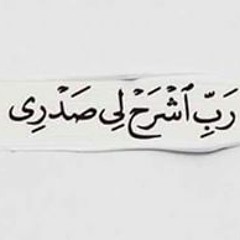 رَبِّ ٱشْرَحْ لِى صَدْرِى